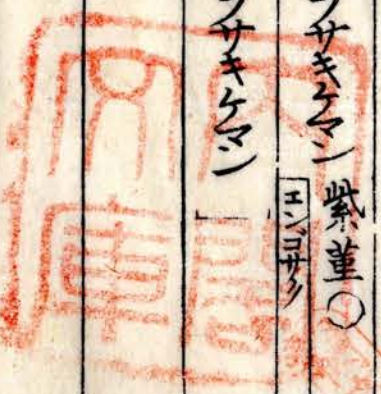 サキケマン 紫菫○
エンゴサク
サキケマン
内閣
文庫